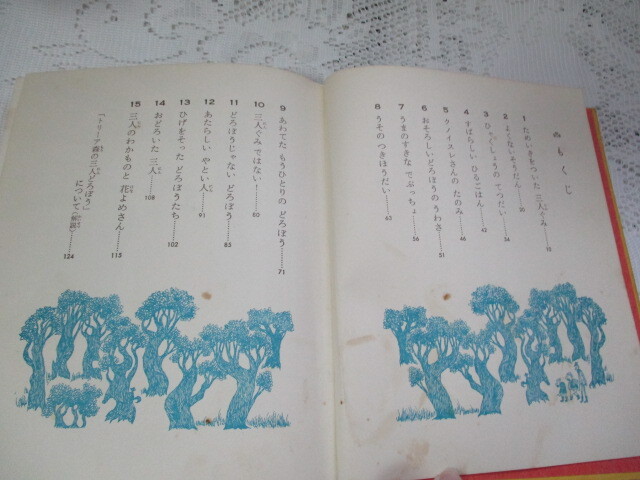 もくじ
1 ためいきをついた 三人ぐみ……10
2 よくないそうだん……20
3 ひゃくしょうの てつだい……34
4 すばらしい ひるごはん……42
5 クノイスレさんの たのみ……46
6 おそろしい どろぼうの うわさ……51
7 うまのすきな でぶっちょ……56
8 うその つきほうだい……63
9 あわてた もうひとりの どろぼう……71
10 三人ぐみ ではない!……80
11 どろぼうじゃない どろぼう……85
12 あたらしい やとい人……91
13 ひげをそった どろぼうたち……102
14 おどろいた 三人……108
15 三人のわかものと 花よめさん……115
「トリーア森の三人どろぼう」
について〈解説〉……124